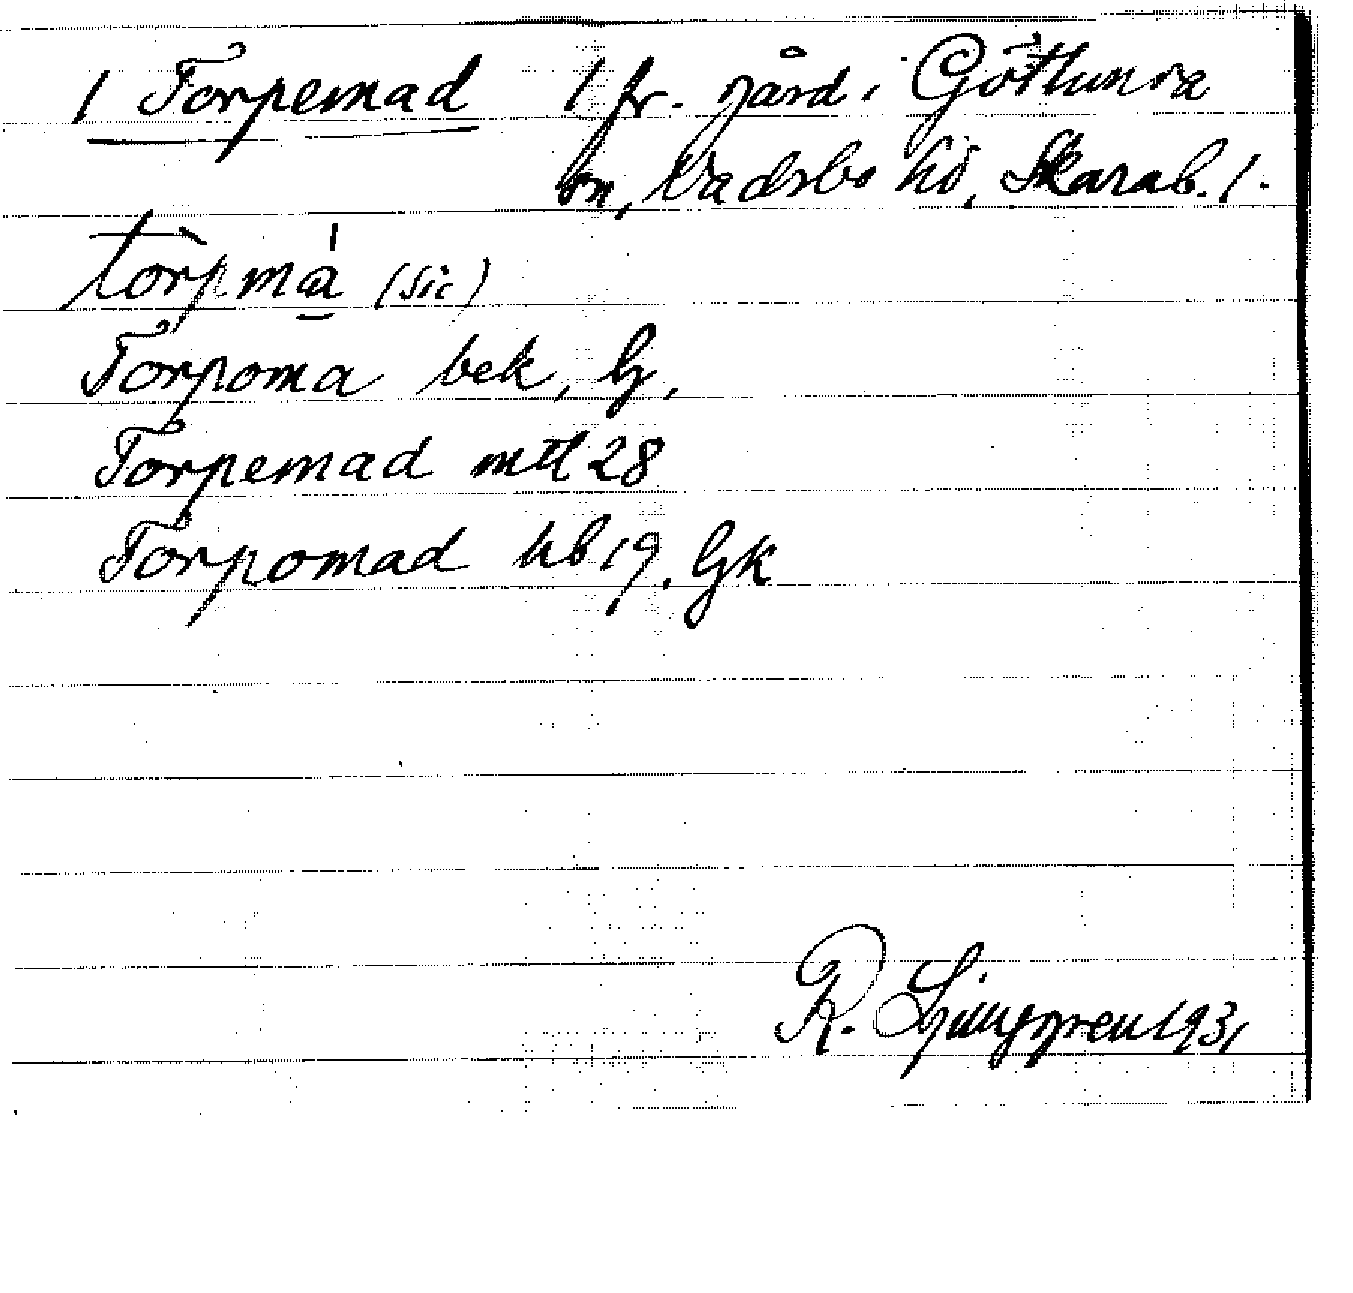 1 Torpemad 1 fr. gård i Götlunda
sn, Vadsbo hd, Skarab. l.
tòrpmà (sic)
Torpoma bek, G.
Torpemad mtl 28
Torpomad hb 19, Gk
R. Ljunggren 1931